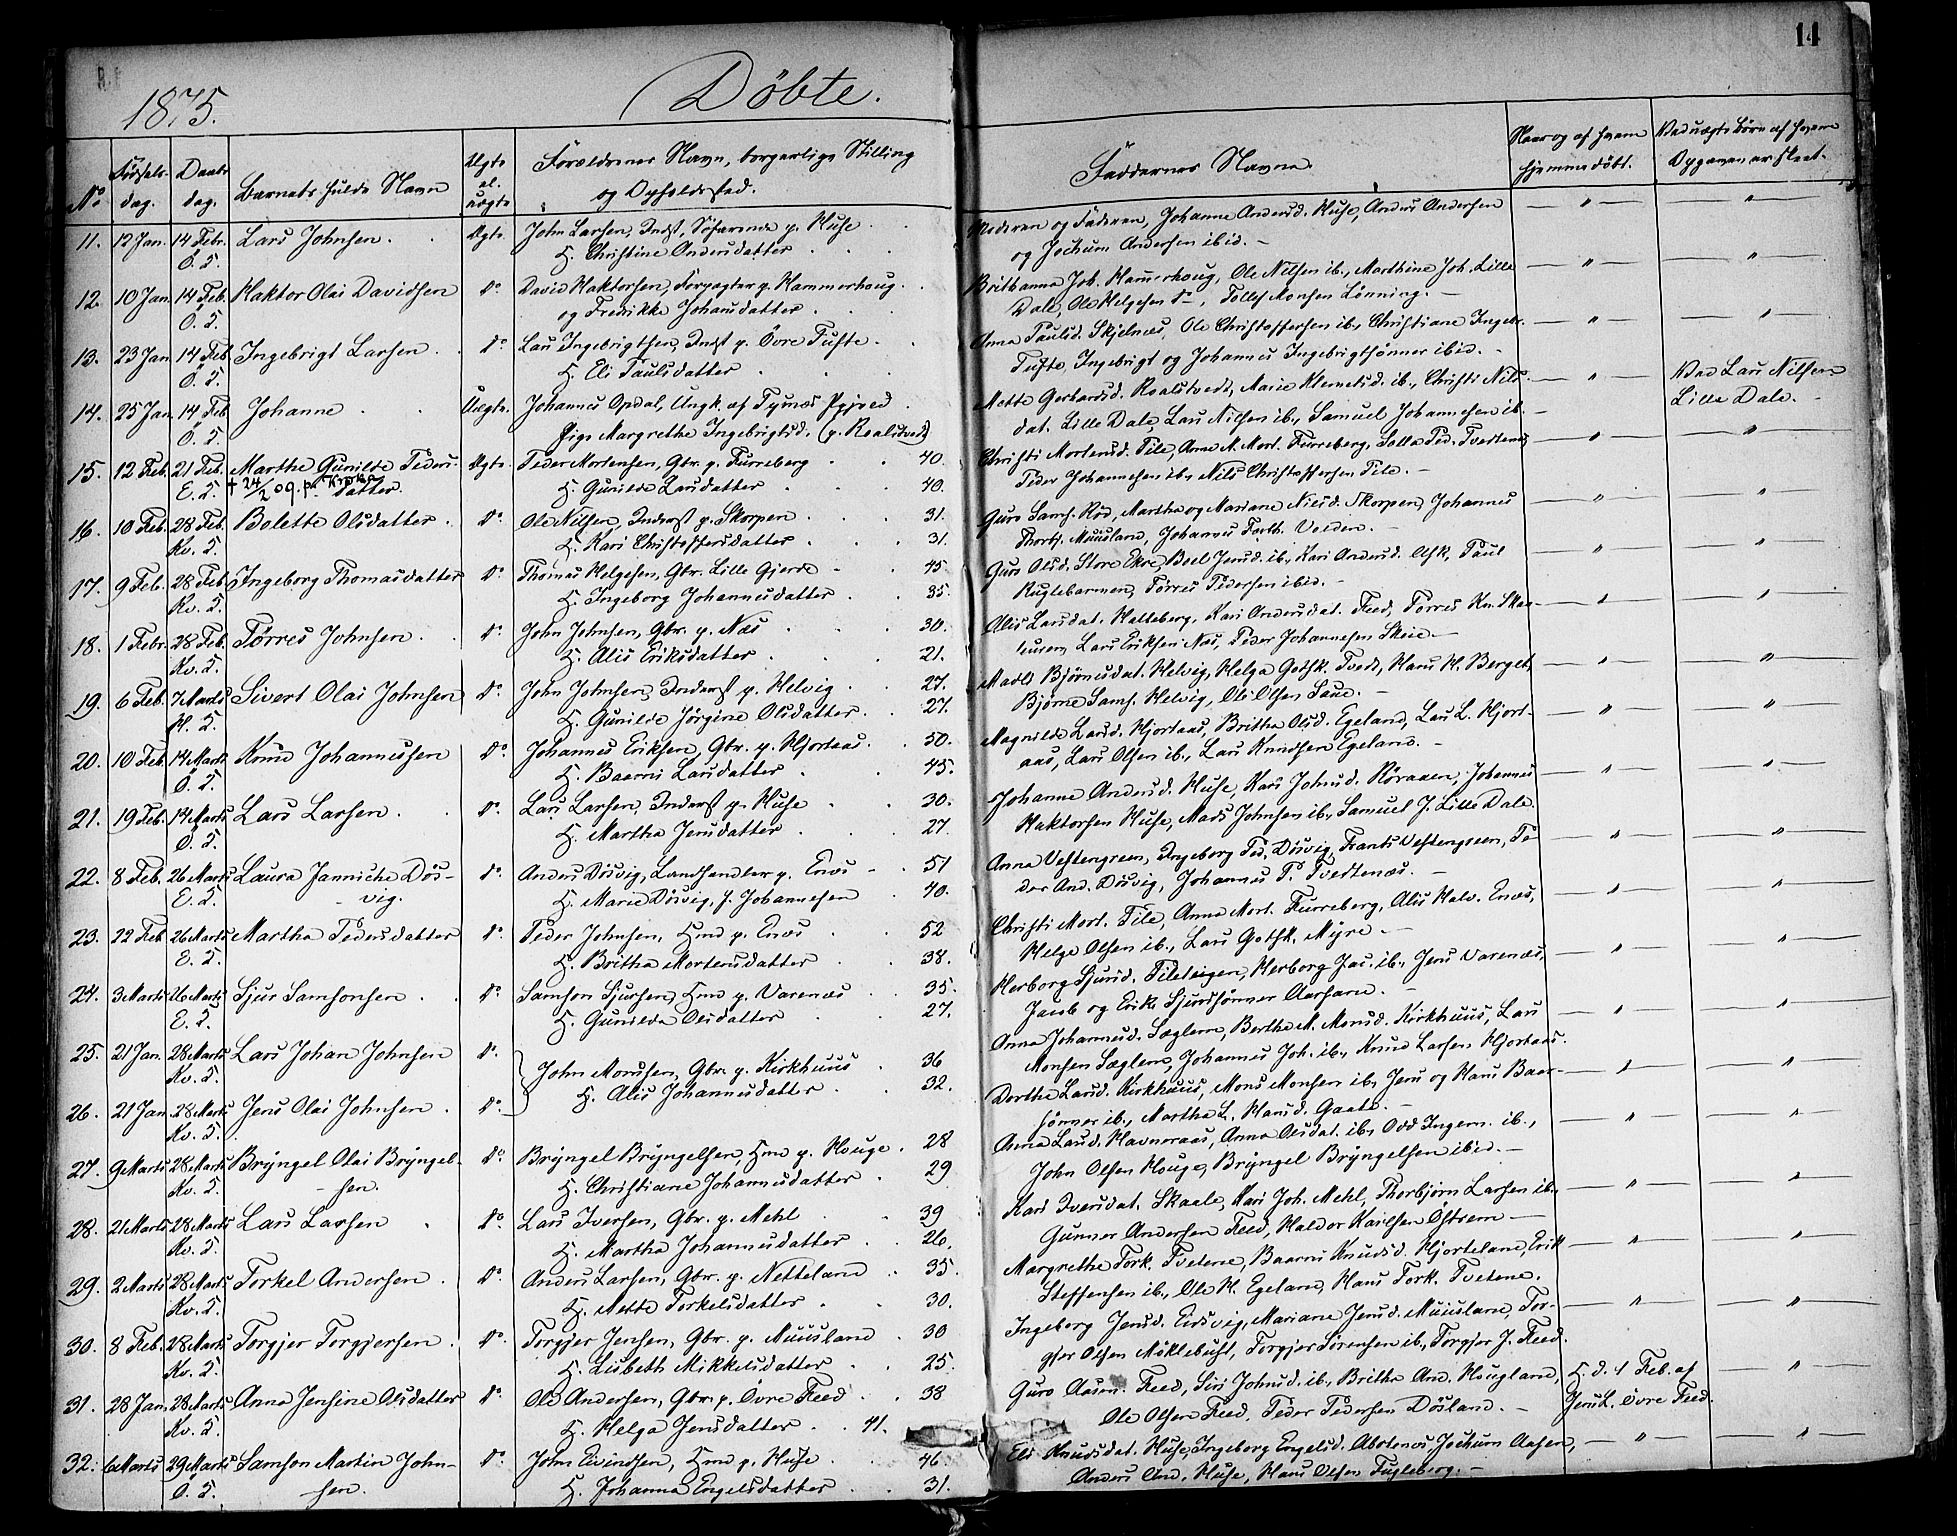 14
1875.
Döbte.
No
Fødsels-dag.
Daabs dag.
Barnets fulde Navn
Ægte el. uægte
Forældrenes Navn, borgerlige Stilling og Opholdssted.
Faddernes Navne
Naar og af hvem hjemmedöbt.
Ved uægte Börn af hvem Opgaven er skeet.
11. 12 Jan. 14 Febr. Ö. T. Lars Johnsen. Ægte. John Larsen, Indst, Söfarende p. Huse
H. Christine Andersdatter
Moderen og Faderen, Johanne Andersd. Huse, Anders Andersen
og Jochum Andersen ibid.
12. 10 Jan. 14 Feb. Ö. T. Haktor Olai Davidsen do David Haktorsen, Forpagter p. Hammerhoug.
og Fredrikke Johansdatter
Brithanna Joh. Hammerhoug, Ole Nilsen ib., Marthine Joh. Lille
Dale, Ole Helgesen do, Tollef Monsen Lönning.
13. 23 Jan 14 Feb Ö. T. Ingebrigt Larsen do Lars Ingebrigtsen, Indst p. Övre Tufte.
H. Eli Paulsdatter
Anna Paulsd. Skjelnes, Ole Christoffersen ib., Christiane Ingebr.
Tufte, Ingebrigt og Johannes Ingebrigtsönner ibid.
14. 25 Jan. 14 Feb Ö. T. Johanne Uægte. Johannes Opdal, Ungk. af Tysnes Prgjeld.
Pige Margrethe Ingebrigtsd. (p. Roalstvedt)
Mette Gerhardsd. Roalstvedt, Marie Klemetsd. ib., Christi Nils-
dat. Lille Dale, Lars Nilsen ib., Samuel Johannesen ib.
Ved Lars Nilsen
Lille Dale.
15. 12 Feb. 21 Feb. E. T. Marthe Gunilde Peders-
datter. † 24/2 09.
Ægte. Peder Mortensen, Gbr. p. Furreberg 40.
H. Gunilde Larsdatter 40.
Christi Mortensd. Tile, Anna M. Mort. Furreberg, Salla Ped. Tvedtenes
Peder Johannesen ib., Nils Christoffersen Tile.
16. 10 Feb. 28 Feb. Kv. T. Bolette Olsdatter do Ole Nilsen, Inderst p. Skorpen 31.
H. Kari Christoffersdatter 31.
Guro Sams. Röd, Martha og Mariane Nilsd. Skorpen, Johannes
Thorbj. Muusland, Johannes Torb. Valden.
17. 9 Feb. 28 Feb. Kv. T. Ingeborg Thomasdatter do Thomas Helgesen, Gbr. Lille Gjerde 45.
H. Ingeborg Johannesdatter 35.
Guro Olsd. Store Ekre, Boel Jensd. ib., Kari Andersd. Alsk, Paul
Kuglebarmen, Törres Pedersen ibid.
18. 1 Febr. 28 Feb. Kv. T. Törres Johnsen do John Johnsen, Gbr. p. Næs 30.
H. Alis Eriksdatter 21.
Alis Larsdat. Helleberg, Kari Andersdat. Feed, Törres Kn. Skaa-
leuren, Lars Eriksen Næs, Peder Johannesen Skeie.
19. 6 Feb. 7 Marts H. T. Sivert Olai Johnsen do John Johnsen, Inderst p. Helvig 27.
H. Gunilde Jörgine Olsdatter 27.
Madle Björnsdat. Helvig, Helga Gotsk. Tvedt, Hans H. Berget,
Bjørne Sams. Helvig, Ole Olsen Saue.
20. 10 Feb. 14 Marts Ö. T. Knud Johannessen do Johannes Eriksen, Gbr. p. Hjortaas. 50.
H. Baarni Larsdatter 45.
Magnilde Larsd. Hjortaas, Britha Olsd. Egeland, Lars L. Hjort-
aas, Lars Olsen ib., Lars Knudsen Egeland.
21. 19 Feb. 14 Marts Ö. T. Lars Larsen do Lars Larsen, Inderst p. Huse 30.
H. Martha Jensdatter 27.
Johanne Andersd. Huse, Kari Johnsd. Röraaen, Johannes
Haktorsen Huse, Mads Johnsen ib., Samuel J. Lille Dale.
22. 8 Feb. 26 Marts E. T. Laura Jannicke Dös-
vig.
do Anders Dösvig, Landhandler p. Enæs 51
H. Marie Dösvig, f. Johannesen 40.
Anna Vestengreen, Ingeborg Ped. Dösvig, Frants Vestengreen, Pe-
der And. Dösvig, Johannes P. Tvedtenæs.
23. 22 Feb 26 Marts E. T. Martha Pedersdatter do Peder Johnsen, Hmd p. Enæs 52
H. Britha Mortensdatter 38.
Christi Mort. Tile, Anna Mort. Furreberg, Alis Halv. Enæs,
Helge Olsen ib., Lars Gotsk. Myre.
24. 3 Marts 26 Marts E. T. Sjur Samsonsen do Samson Sjursen, Hmd p. Varenæs 35.
H. Gunilda Olsdatter 27.
Herborg Sjursd. Tileteigen, Herborg Jac. ib., Jens Varenæs,
Jacob og Erik Sjurssönner Aarsand.
25. 21 Jan. 28 Marts Kv. T. Lars Johan Johnsen do
John Monsen, Gbr. p. Kirkhuus 36
H. Alis Johannesdatter 32.
Anna Johannesd. Sæglem, Berthe M. Monsd. Kirkhuus, Lars
Monsen Sæglem, Johannes Joh. ib., Knud Larsen Hjortaas.
26. 21 Jan. 28 Marts Kv. T. Jens Olai Johnsen do
Dorthe Larsd. Kirkhuus, Mons Monsen ib., Jens og Hans Baar-
sönner ib., Martha L. Hansd. Gaate.
27. 9 Marts 28 Marts Kv. T. Bryngel Olai Bryngel-
sen.
do Bryngel Bryngelsen, Hmd p. Houge. 28
H. Christiane Johannesdatter 29
Anna Larsd. Havneraas, Anna Olsdat. ib., Odd Ingem. ib.,
John Olsen Houge, Bryngel Bryngelsen ibid.
28. 21 Marts 28 Marts Kv. T. Lars Larsen do Lars Iversen, Gbr. p. Mehl 39
H. Martha Johannesdatter 26.
Kari Iversdat. Skaale, Kari Joh. Mehl, Thorbjörn Larsen ib.,
Gunner Andersen Feed, Haldor Karlsen Östrem
29. 2 Marts 28 Marts Kv. T. Torkel Andersen do Anders Larsen, Gbr. p. Netteland 35.
H. Mette Torkelsdatter 30.
Margrethe Tork. Tvetene, Baarni Knudsd. Hjorteland, Erik
Steffensen ib., Ole H. Egeland, Hans Tork. Tvetene.
30. 8 Feb. 28 Marts Kv. T. Torgjer Torgjersen do Torgjer Jensen, Gbr. p. Muusland 30
H. Lisbeth Mikkelsdatter 25.
Ingeborg Jensd. Eidsvig, Mariane Jensd. Muusland, Tor-
gjer Olsen Möklebust, Torgjer Sörensen ib., Torgjer J. Feed.
31. 28 Jan. 28 Marts Kv. T. Anna Jensine Olsdatter do Ole Andersen, Gbr. p. Övre Feed 38
H. Helga Jensdatter 41.
Guro Aasm. Feed, Siri Johnsd. ib., Britha And. Hougland,
Ole Olsen Feed, Peder Pedersen Dösland.
H. d. 1 Feb. af
Jens L. Övre Feed.
32. 6 Marts 29 Marts Ö. T. Samson Martin John-
sen.
do John Eivindsen, Hmd p. Huse 46.
H. Johanna Engelsdatter 31.
Eli Knudsdat. Huse, Ingeborg Engelsd. Alvstenes, Jochum Aasen,
Anders And. Huse, Hans Olsen Fugleberg.